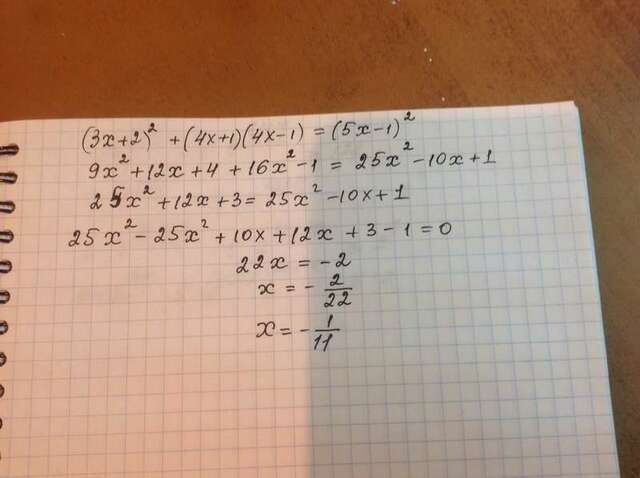 (3x+2)² + (4x+1)(4x-1) = (5x-1)²
9x² + 12x + 4 + 16x² - 1 = 25x² - 10x + 1
25x² + 12x + 3 = 25x² - 10x + 1
25x² - 25x² + 10x + 12x + 3 - 1 = 0
22x = -2
x = - 2/22
x = - 1/11